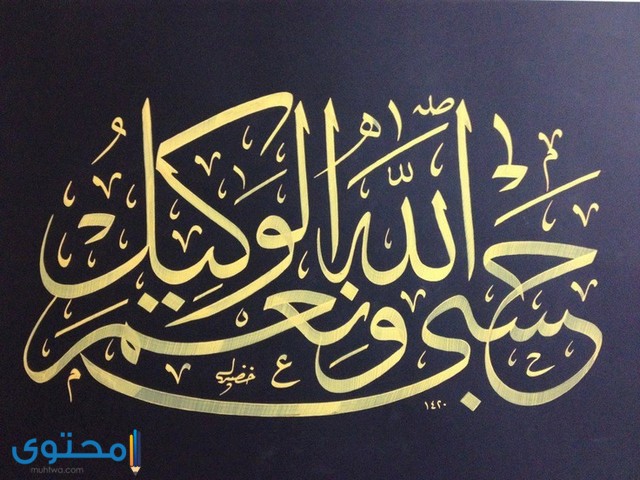 حسبي الله ونعم الوكيل
١٤٢٠
محتوى
muhtwa.com